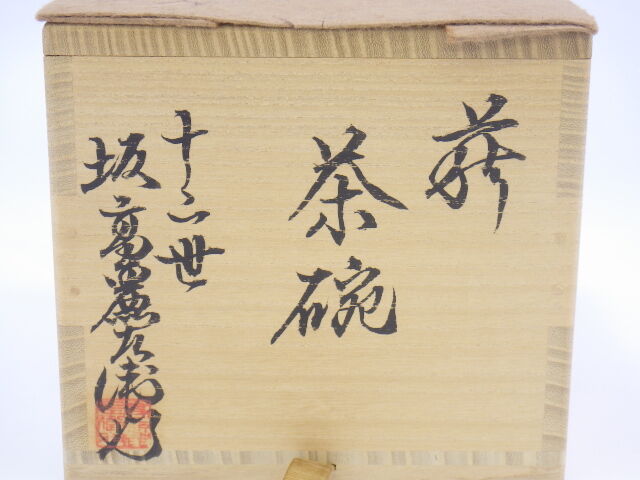 萩
茶碗
十二世
坂高麗左衛門